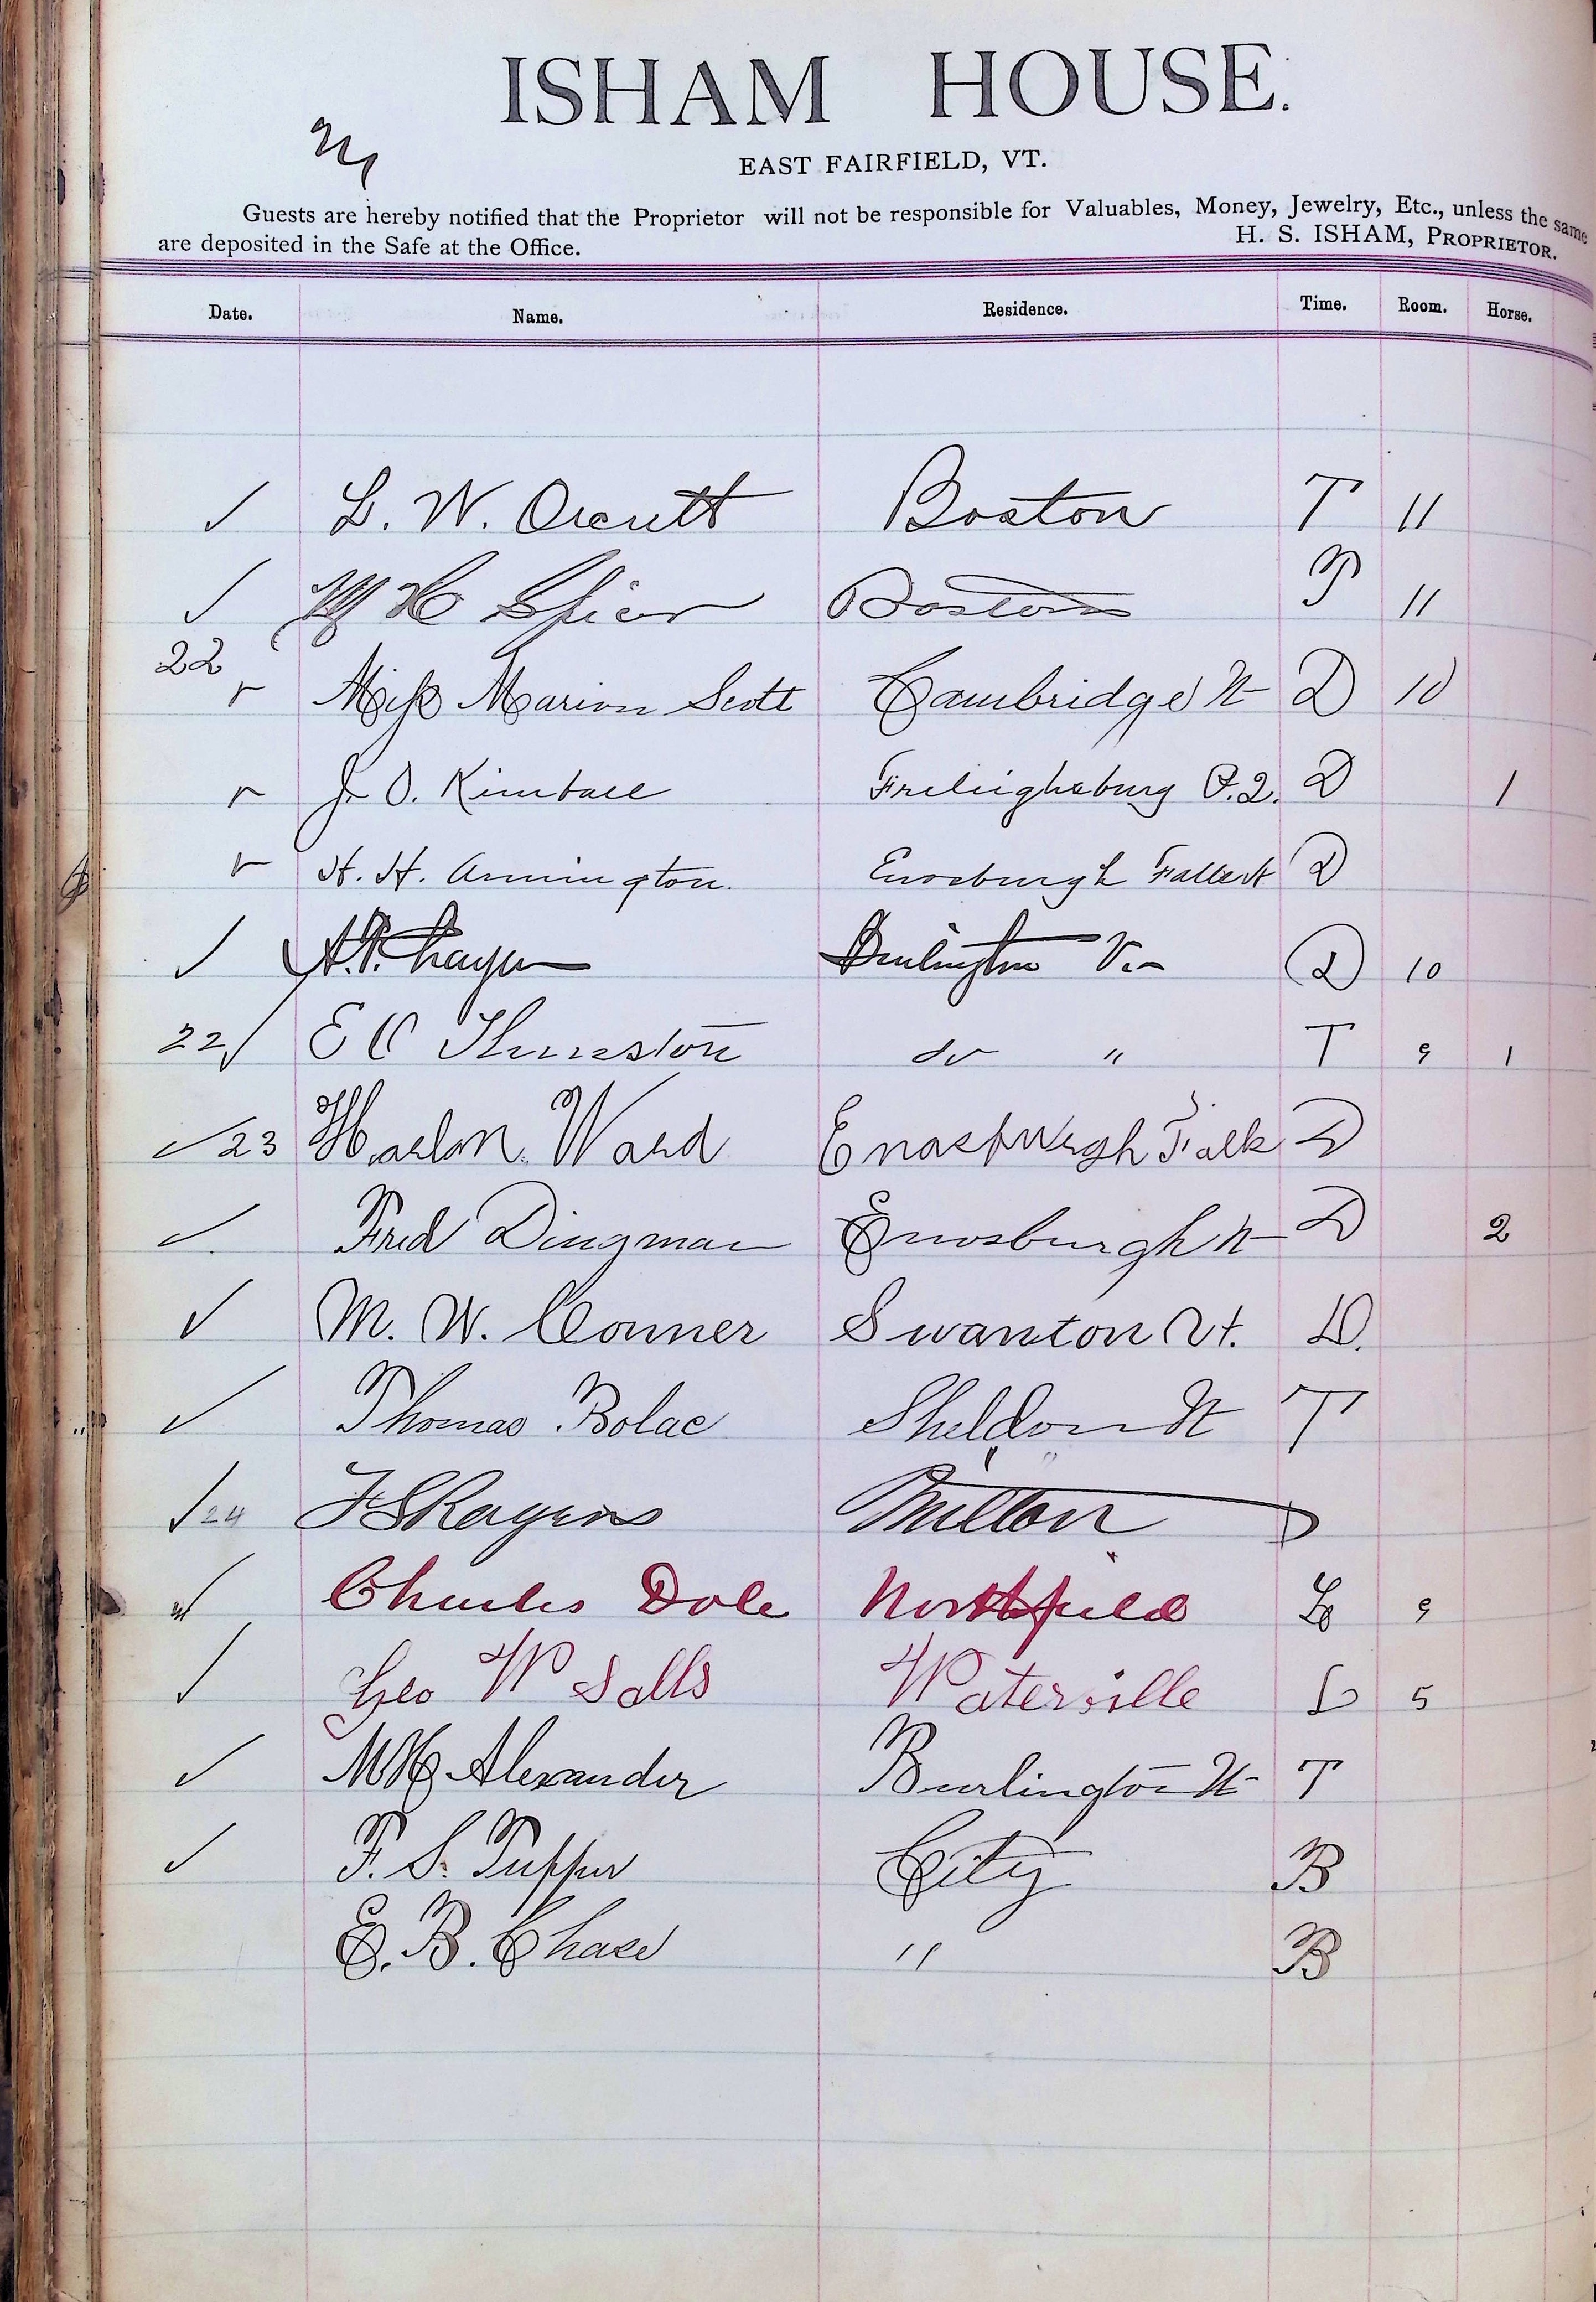 ISHAM HOUSE.
EAST FAIRFIELD, VT.
Guests are hereby notified that the Proprietor will not be responsible for Valuables, Money, Jewelry, Etc., unless the same
are deposited in the Safe at the Office. H. S. ISHAM, PROPRIETOR.
Date. Name. Residence. Time. Room. Horse.
✓ L. W. Orcutt Boston T 11
✓ W H Spicer Boston T 11
22 ✓ Miss Marion Scott Cambridge Vt D 10
✓ J. O. Kimball Frelieghsburg P.Q. D 1
✓ H. H. Armington. Enosburgh Falls Vt D
✓ A. P. Thayer Burlington Vt D 10
22 ✓ E C Thurston do " T 9 1
✓ 23 Harlon Ward Enosburgh Falls D
✓ Fred Dingman Enosburgh Vt D 2
✓ M. W. Conner Swanton Vt. D.
✓ Thomas Bolac Sheldon Vt T
✓ 24 F S Rogers Milton D
✓ Charles Dole Northfield L 9
✓ Geo W Salls Waterville L 5
✓ Alexander Burlington Vt T
✓ F. S. Tupper City B
E. B. Chase " B